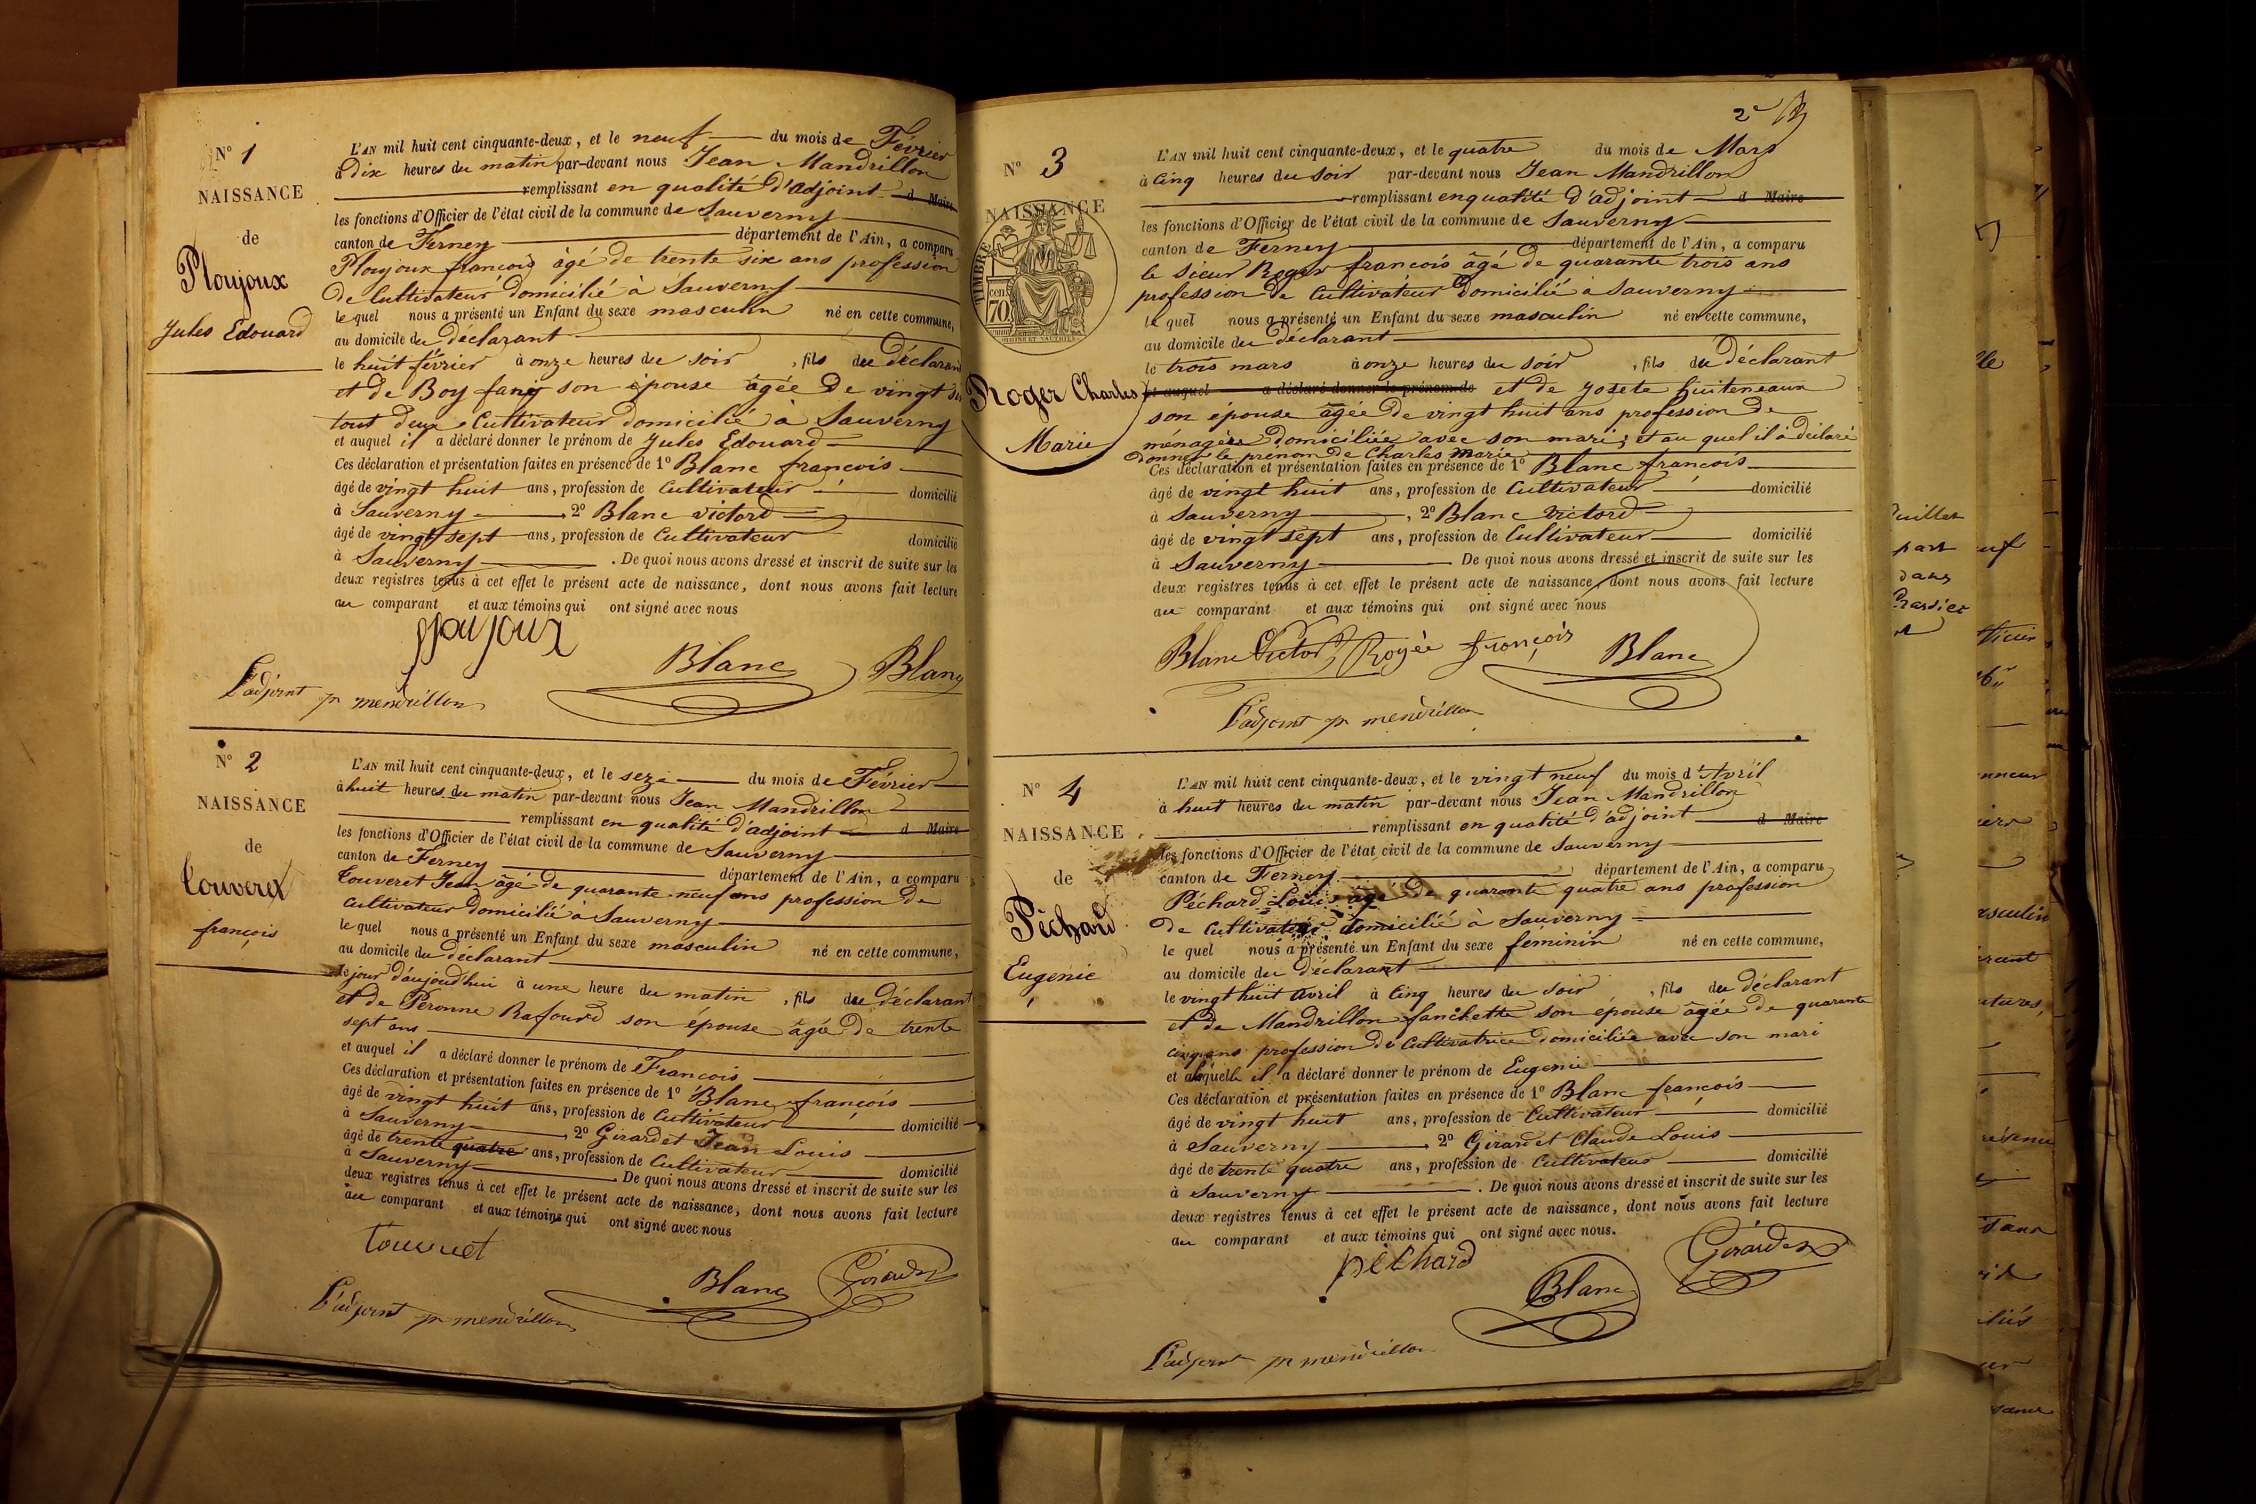 N° 1
NAISSANCE
de
Ploujoux
Jules Edouard
L'AN mil huit cent cinquante-deux, et le neuf du mois de Février
à dix heures du matin par-devant nous Jean Mandrillon
remplissant en qualité d'adjoint d Maire
les fonctions d'Officier de l'état civil de la commune de Sauverny
canton de Ferney département de l'Ain, a comparu
Ploujoux françois âgé de trente six ans profession
de Cultivateur domicilié à Sauverny
le quel nous a présenté un Enfant du sexe masculin né en cette commune,
au domicile du déclarant
le huit février à onze heures du soir, fils du déclarant
et de Boy fany son épouse âgée de vingt
tout deux Cultivateur domicilié à Sauverny
et auquel il a déclaré donner le prénom de Jules Edouard
Ces déclaration et présentation faites en présence de 1° Blanc francois
âgé de vingt huit ans, profession de Cultivateur domicilié
à Sauverny, 2° Blanc victord
âgé de vingt sept ans, profession de Cultivateur domicilié
à Sauverny. De quoi nous avons dressé et inscrit de suite sur les
deux registres tenus à cet effet le présent acte de naissance, dont nous avons fait lecture
au comparant et aux témoins qui ont signé avec nous
Ploujoux
Blanc Blanc
L'adjoint jn mendrillon
N° 2
NAISSANCE
de
Touveret
françois
L'AN mil huit cent cinquante-deux, et le seze du mois de Février
à huit heures du matin par-devant nous Jean Mandrillon
remplissant en qualité d'adjoint d Maire
les fonctions d'Officier de l'état civil de la commune de Sauverny
canton de Ferney département de l'Ain, a comparu
Touveret Jean âgé de quarante neuf ans profession de
cultivateur domicilié à Sauverny
le quel nous a présenté un Enfant du sexe masculin né en cette commune,
au domicile du déclarant
le jour d'aujoud'hui à une heure du matin, fils du déclarant
et de Peronne Rafourd son épouse âgée de trente
sept ans
et auquel il a déclaré donner le prénom de Francois
Ces déclaration et présentation faites en présence de 1° Blanc francois
âgé de vingt huit ans, profession de Cultivateur domicilié
à Sauverny, 2° Girardet Jean Louis
âgé de trente quatre ans, profession de Cultivateur domicilié
à Sauverny. De quoi nous avons dressé et inscrit de suite sur les
deux registres tenus à cet effet le présent acte de naissance, dont nous avons fait lecture
au comparant et aux témoins qui ont signé avec nous
touveret
Blanc Girardet
L'adjoint jn mendrillon
2e
N° 3
NAISSANCE
TIMBRE
70 cen
Roger Charles
Marie
L'AN mil huit cent cinquante-deux, et le quatre du mois de Mars
à Cinq heures du soir par-devant nous Jean Mandrillon
remplissant en qualité d'adjoint d Maire
les fonctions d'Officier de l'état civil de la commune de Sauverny
canton de Ferney département de l'Ain, a comparu
le sieur Roger francois âgé de quarante trois ans
profession de Cultivateur domicilié à Sauverny
le quel nous a présenté un Enfant du sexe masculin né en cette commune,
au domicile du déclarant
le trois mars à onze heures du soir, fils du déclarant
et auquel a déclaré donner le prénom de et de Josete
son épouse âgée de vingt huit ans profession de
ménagère domiciliée avec son mari; et au quel il à déclaré
donner le prénom de Charles Marie
Ces déclaration et présentation faites en présence de 1° Blanc francois
âgé de vingt huit ans, profession de Cultivateur domicilié
à Sauverny, 2° Blanc Victord
âgé de vingt sept ans, profession de Cultivateur domicilié
à Sauverny De quoi nous avons dressé et inscrit de suite sur les
deux registres tenus à cet effet le présent acte de naissance, dont nous avons fait lecture
au comparant et aux témoins qui ont signé avec nous
Blanc Victor Rogée françois Blanc
L'adjoint jn mendrillon
N° 4
NAISSANCE
de
Péchard
Eugenie
L'AN mil huit cent cinquante-deux, et le vingt neuf du mois d'Avril
à huit heures du matin par-devant nous Jean Mandrillon
remplissant en qualité d'adjoint d Maire
les fonctions d'Officier de l'état civil de la commune de Sauverny
canton de Ferney département de l'Ain, a comparu
Péchard Louis âgé de quarante quatre ans profession
de Cultivateur domicilié à Sauverny
le quel nous a présenté un Enfant du sexe féminin né en cette commune,
au domicile du déclarant
le vingt huit avril à Cinq heures du soir, fils du déclarant
et de Mandrillon fanchette son épouse âgée de quarante
cinq ans profession de Cultivatrice domiciliée avec son mari
et à laquelle il a déclaré donner le prénom de Eugenie
Ces déclaration et présentation faites en présence de 1° Blanc francois
âgé de vingt huit ans, profession de Cultivateur domicilié
à Sauverny 2° Girardet Claude Louis
âgé de trente quatre ans, profession de Cultivateur domicilié
à Sauverny. De quoi nous avons dressé et inscrit de suite sur les
deux registres tenus à cet effet le présent acte de naissance, dont nous avons fait lecture
au comparant et aux témoins qui ont signé avec nous.
péchard
Blanc Girardet
L'adjoint jn mendrillon